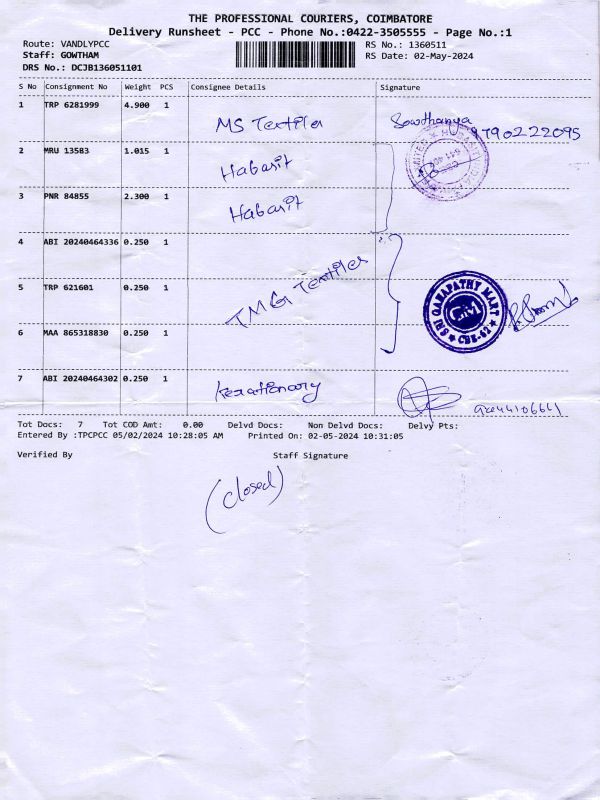 THE PROFESSIONAL COURIERS, COIMBATORE
Delivery Runsheet - PCC - Phone No.:0422-3505555 - Page No.:1
Route: VANDLYPCC RS No.: 1360511
Staff: GOWTHAM RS Date: 02-May-2024
DRS No.: DCJB136051101
S No Consignment No Weight PCS Consignee Details Signature
1 TRP 6281999 4.900 1 MS Textiles Sowthanya
9790222095
2 MRU 13583 1.015 1 Habasit
3 PNR 84855 2.300 1 Habasit
4 ABI 20240464336 0.250 1
5 TRP 621601 0.250 1 TMG Textiles
SRI GANAPATHY MART
CBE-62
6 MAA 865318830 0.250 1
7 ABI 20240464302 0.250 1
Tot Docs: 7 Tot COD Amt: 0.00 Delvd Docs: Non Delvd Docs: Delvy Pts:
Entered By :TPCPCC 05/02/2024 10:28:05 AM Printed On: 02-05-2024 10:31:05
Verified By Staff Signature
(closed)